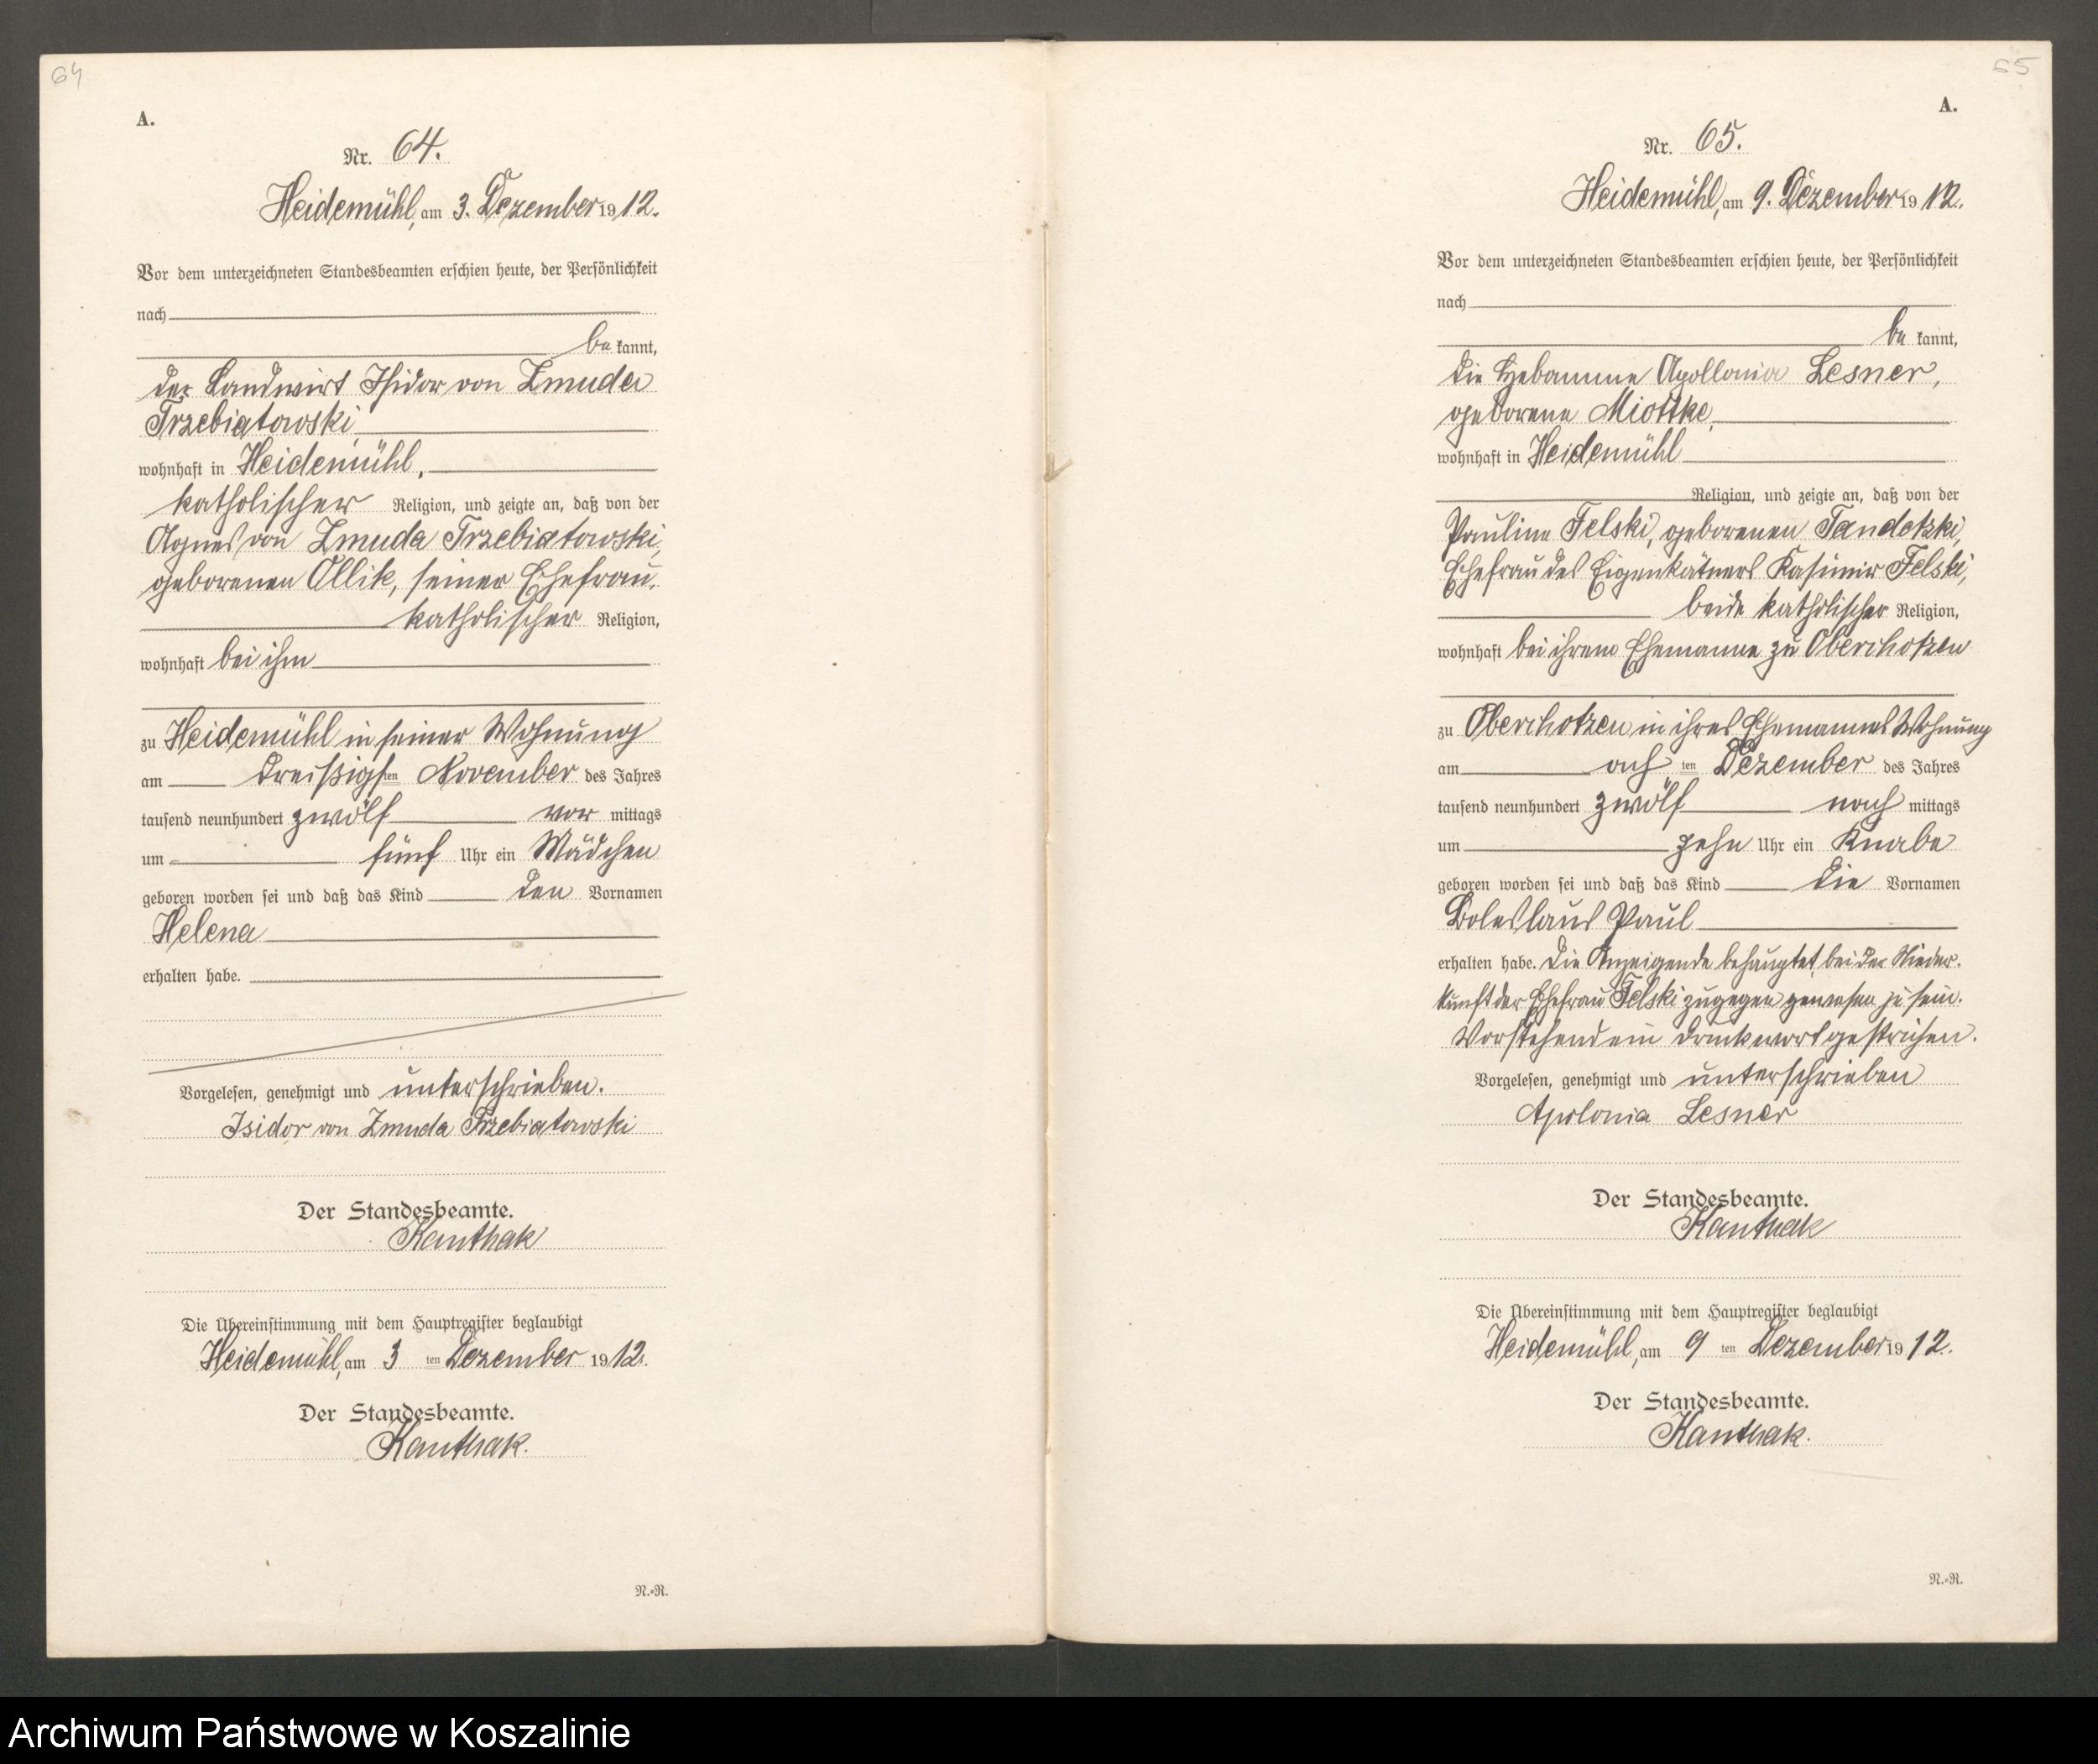 64
A.
Nr. 64.
Heidemühl, am 3. Dezember 1912.
Vor dem unterzeichneten Standesbeamten erschien heute, der Persönlichkeit
nach
be kannt,
der Landwirt Isidor von Zmuda
Trzebiatowski,
wohnhaft in Heidemühl,
katholischer Religion, und zeigte an, daß von der
Agnes von Zmuda Trzebiatowski,
geborenen Ollik, seiner Ehefrau,
katholischer Religion,
wohnhaft bei ihm
zu Heidemühl in seiner Wohnung
am dreißigsten November des Jahres
tausend neunhundert zwölf vor mittags
um fünf Uhr ein Mädchen
geboren worden sei und daß das Kind den Vornamen
Helena
erhalten habe.
Vorgelesen, genehmigt und unterschrieben.
Isidor von Zmuda Trzebiatowski
Der Standesbeamte.
Kanthak
Die Übereinstimmung mit dem Hauptregister beglaubigt
Heidemühl, am 3 ten Dezember 1912.
Der Standesbeamte.
Kanthak.
N.-R.
65
A.
Nr. 65.
Heidemühl, am 9. Dezember 1912.
Vor dem unterzeichneten Standesbeamten erschien heute, der Persönlichkeit
nach
be kannt,
die Hebamme Apollonia Lesner,
geborene Miottke,
wohnhaft in Heidemühl
Religion, und zeigte an, daß von der
Pauline Felski, geborenen Tandetzki,
Ehefrau des Eigenkätners Kasimir Felski,
beide katholischer Religion,
wohnhaft bei ihrem Ehemanne zu Oberchotzen
zu Oberchotzen in ihres Ehemannes Wohnung
am ach ten Dezember des Jahres
tausend neunhundert zwölf nach mittags
um zehn Uhr ein Knabe
geboren worden sei und daß das Kind die Vornamen
Boleslaus Paul
erhalten habe. Die Anzeigende behauptet, bei der Nieder-
kunft der Ehefrau Felski zugegen gewesen zu sein.
Vorstehend ein Druckwort gestrichen.
Vorgelesen, genehmigt und unterschrieben
Apolonia Lesner
Der Standesbeamte.
Kanthak
Die Übereinstimmung mit dem Hauptregister beglaubigt
Heidemühl, am 9 ten Dezember 1912.
Der Standesbeamte.
Kanthak.
N.-R.
Archiwum Państwowe w Koszalinie